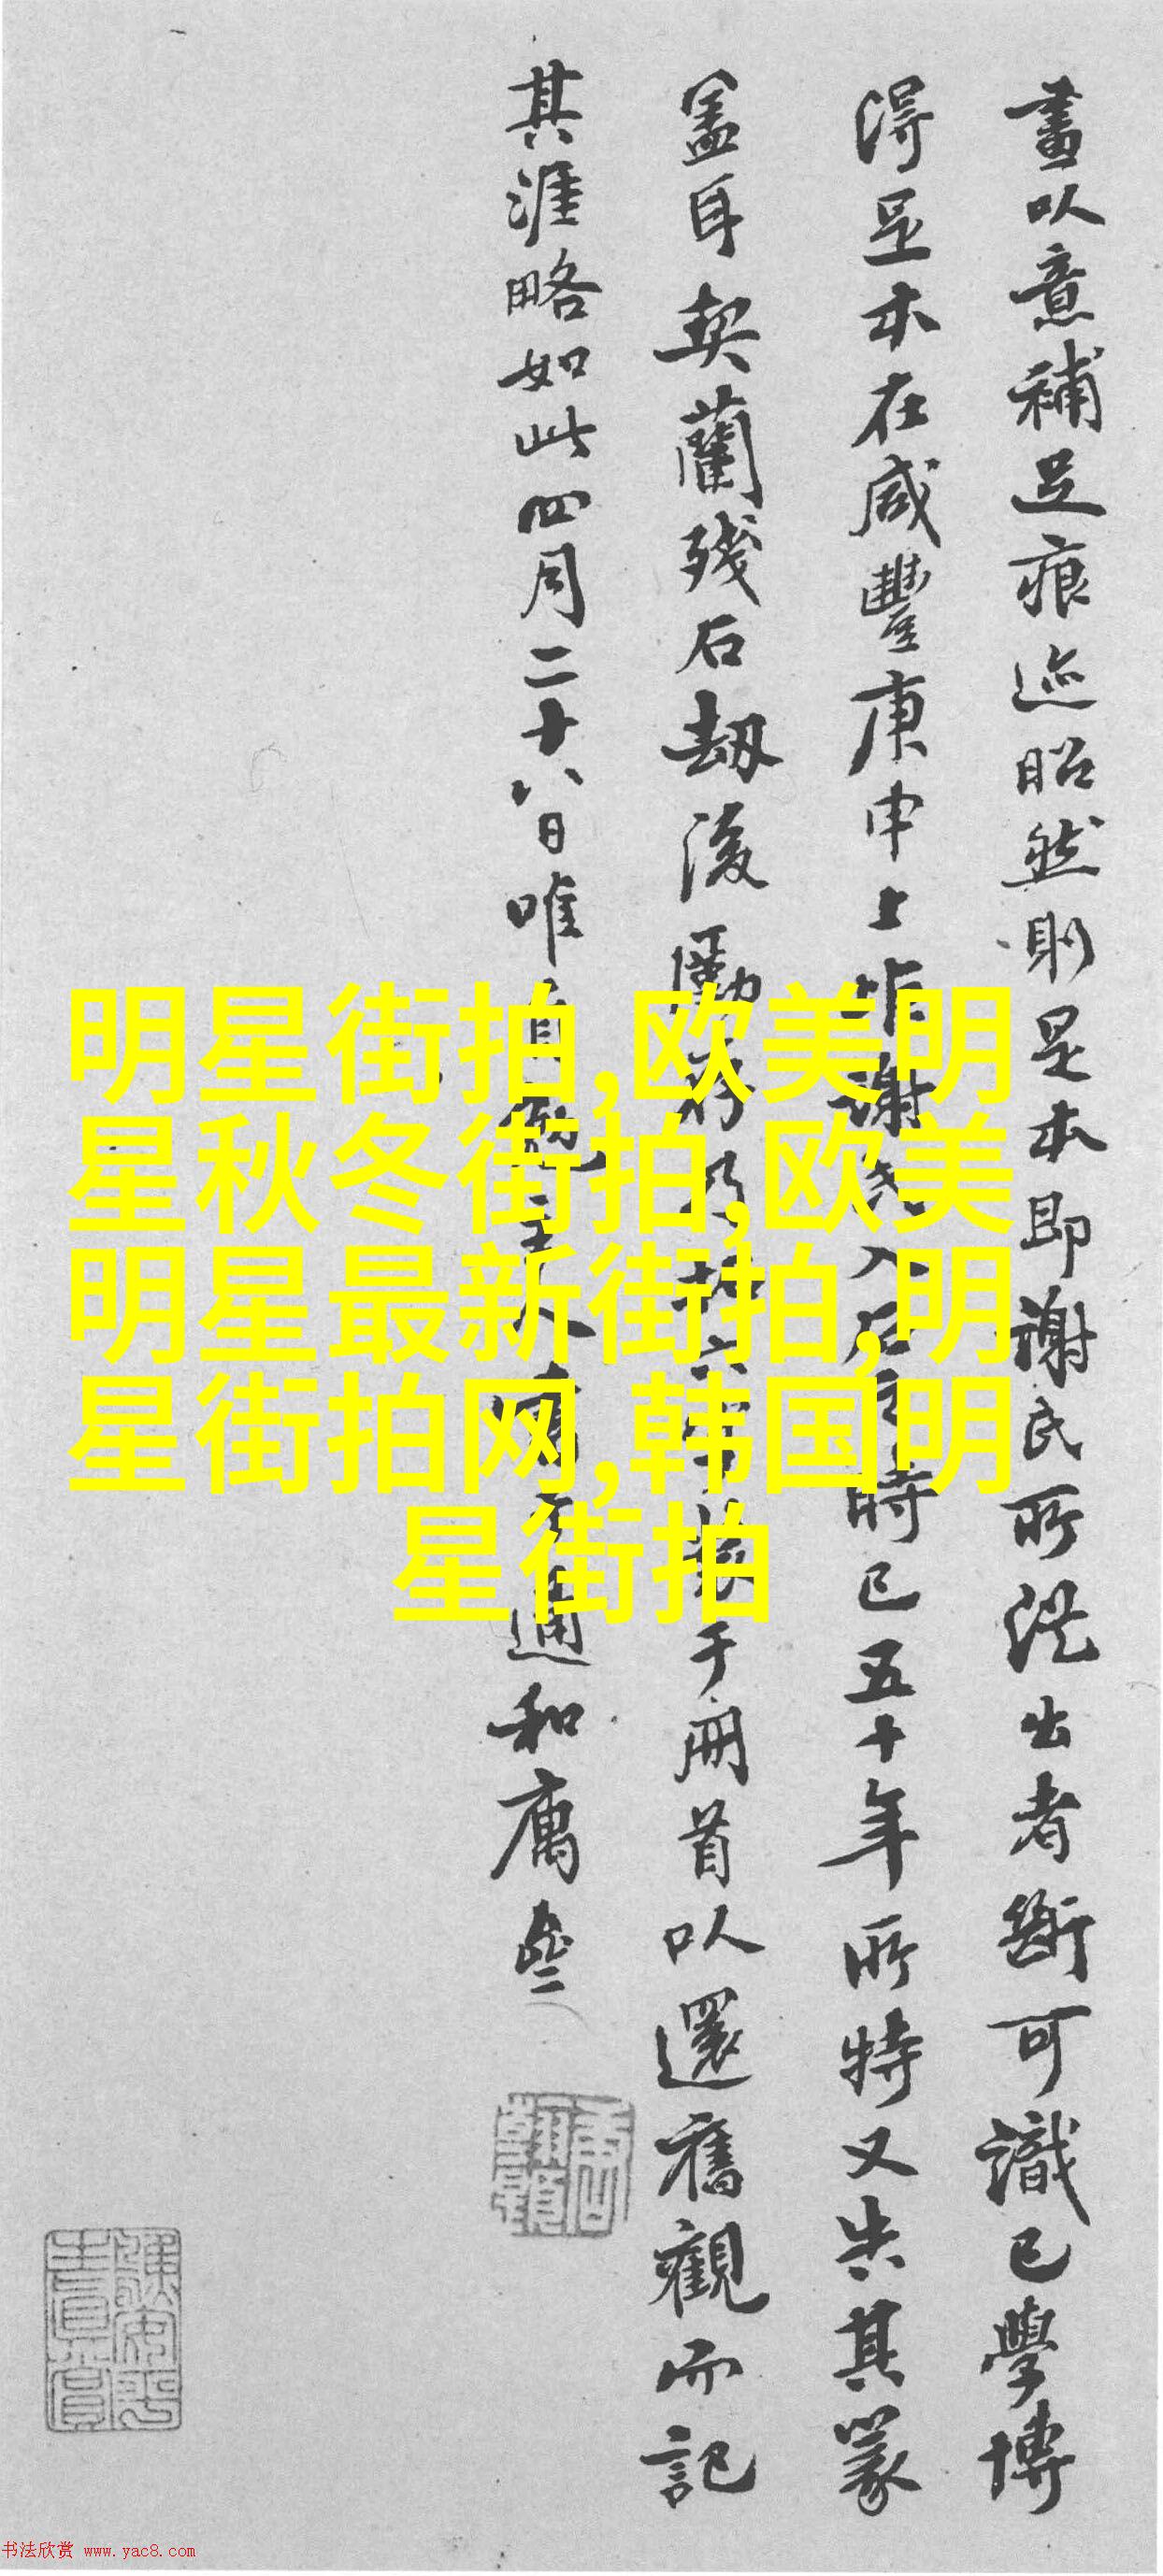 畫以意補足痕迹昭然則是本即謝氏所從出者斷可識已學博
得足本在咸豐庚申上距謝氏入石之時已五十年所特又失其篆
盖耳契蘭殘石劫後 于冊首以還舊觀而記
其涯略如此四月二十八日唯 主人 通和
明星街拍,欧美明
星秋冬街拍,欧美
明星最新街拍,明
星街拍网,韩国明
星街拍
书法欣赏 www.yac8.com